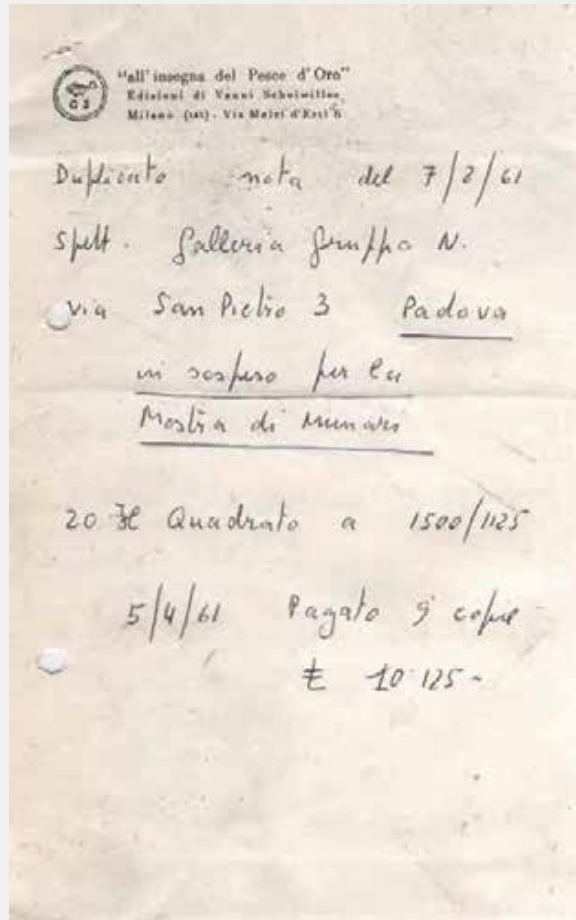 G S
"all'insegna del Pesce d'Oro"
Edizioni di Vanni Scheiwiller
Milano (141) - Via Melzi d'Eril 6
Duplicato nota del 7/2/61
Spett. Galleria Gruppo N.
via San Pietro 3 Padova
in sospeso per la
Mostra di Munari
20 Il Quadrato a 1500/1125
5/4/61 Pagato 9 copie
£ 10.125-